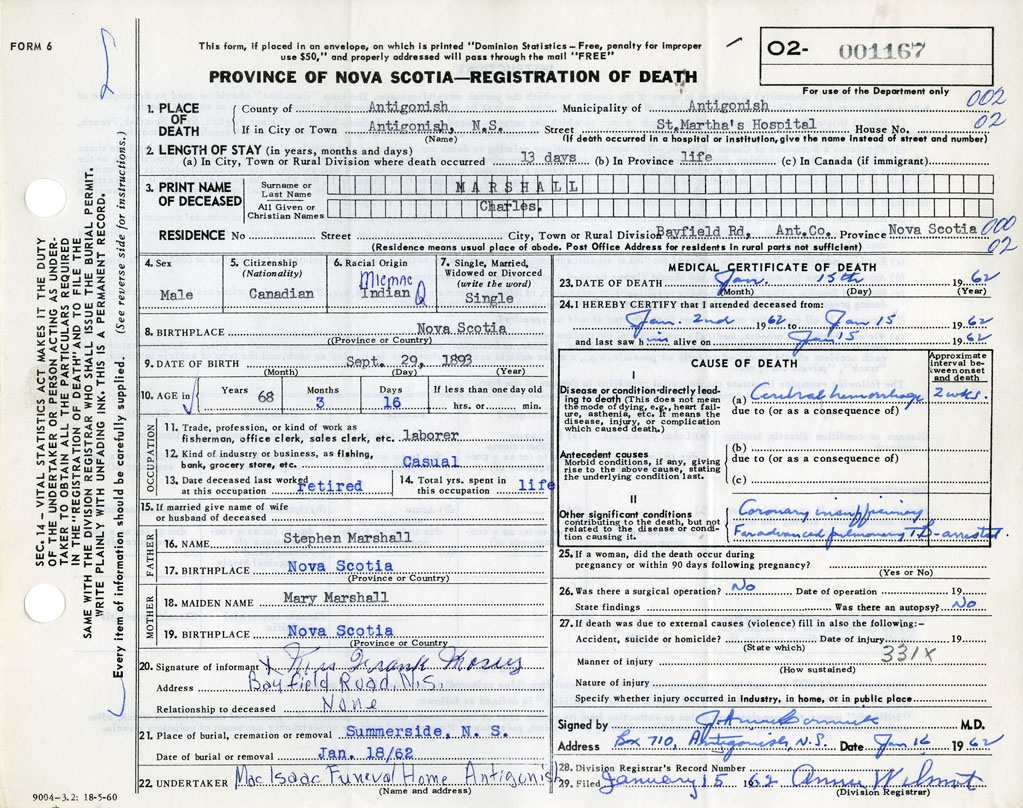 FORM 6
This form, if placed in an envelope, on which is printed "Dominion Statistics – Free, penalty for improper
use $50," and properly addressed will pass through the mail "FREE"
O2- 001167
For use of the Department only
PROVINCE OF NOVA SCOTIA—REGISTRATION OF DEATH
002
02
1. PLACE OF DEATH
County of Antigonish Municipality of Antigonish
If in City or Town Antigonish, N.S. Street St.Martha's Hospital House No.
(Name) (If death occurred in a hospital or institution, give the name instead of street and number)
2. LENGTH OF STAY (in years, months and days)
(a) In City, Town or Rural Division where death occurred 13 days (b) In Province life (c) In Canada (if immigrant)
3. PRINT NAME OF DECEASED
Surname or Last Name MARSHALL
All Given or Christian Names Charles.
RESIDENCE No Street City, Town or Rural Division Bayfield Rd, Ant.Co. Province Nova Scotia
000
02
(Residence means usual place of abode. Post Office Address for residents in rural parts not sufficient)
4. Sex
Male
5. Citizenship
(Nationality)
Canadian
6. Racial Origin
Micmac
Indian
7. Single, Married,
Widowed or Divorced
(write the word)
Single
8. BIRTHPLACE Nova Scotia
(Province or Country)
9. DATE OF BIRTH Sept. 29, 1893
(Month) (Day) (Year)
10. AGE in
Years 68
Months 3
Days 16
If less than one day old
hrs. or min.
OCCUPATION
11. Trade, profession, or kind of work as
fisherman, office clerk, sales clerk, etc. laborer
12. Kind of industry or business, as fishing,
bank, grocery store, etc. Casual
13. Date deceased last worked
at this occupation retired
14. Total yrs. spent in
this occupation life
15. If married give name of wife
or husband of deceased
FATHER
16. NAME Stephen Marshall
17. BIRTHPLACE Nova Scotia
(Province or Country)
MOTHER
18. MAIDEN NAME Mary Marshall
19. BIRTHPLACE Nova Scotia
(Province or Country)
20. Signature of informant x Mrs Frank
Address Bayfield Road, N.S.
Relationship to deceased None
21. Place of burial, cremation or removal Summerside, N. S.
Date of burial or removal Jan. 18/62
22. UNDERTAKER MacIsaac Funeral Home Antigonish
(Name and address)
MEDICAL CERTIFICATE OF DEATH
23. DATE OF DEATH Jan. 15th 1962
(Month) (Day) (Year)
24. I HEREBY CERTIFY that I attended deceased from:
Jan. 2nd 1962 to Jan 15 1962
and last saw him alive on Jan 15 1962
CAUSE OF DEATH
Approximate
interval between onset
and death
I
Disease or condition directly leading
to death (This does not mean
the mode of dying, e.g., heart failure,
asthenia, etc. It means the
disease, injury, or complication
which caused death.)
(a) Cerebral hemorrhage 2 wks.
due to (or as a consequence of)
Antecedent causes
Morbid conditions, if any, giving
rise to the above cause, stating
the underlying condition last.
(b)
due to (or as a consequence of)
(c)
II
Other significant conditions
contributing to the death, but not
related to the disease or condition
causing it.
Coronary insufficiency
Far advanced pulmonary TB-arrested
25. If a woman, did the death occur during
pregnancy or within 90 days following pregnancy?
(Yes or No)
26. Was there a surgical operation? No Date of operation 19
State findings Was there an autopsy? No
27. If death was due to external causes (violence) fill in also the following:–
Accident, suicide or homicide? Date of injury 19
(State which)
331X
Manner of injury
(How sustained)
Nature of injury
Specify whether injury occurred in Industry, in home, or in public place.
Signed by M.D.
Address Box 710, Antigonish, N.S. Date Jan 16 1962
28. Division Registrar's Record Number
29. Filed January 15 1962
(Division Registrar)
SEC. 14 – VITAL STATISTICS ACT MAKES IT THE DUTY
OF THE UNDERTAKER OR PERSON ACTING AS UNDERTAKER
TO OBTAIN ALL THE PARTICULARS REQUIRED
IN THE "REGISTRATION OF DEATH" AND TO FILE THE
SAME WITH THE DIVISION REGISTRAR WHO SHALL ISSUE THE BURIAL PERMIT.
WRITE PLAINLY WITH UNFADING INK. THIS IS A PERMANENT RECORD.
Every item of information should be carefully supplied. (See reverse side for instructions.)
9004–3.2: 18-5-60